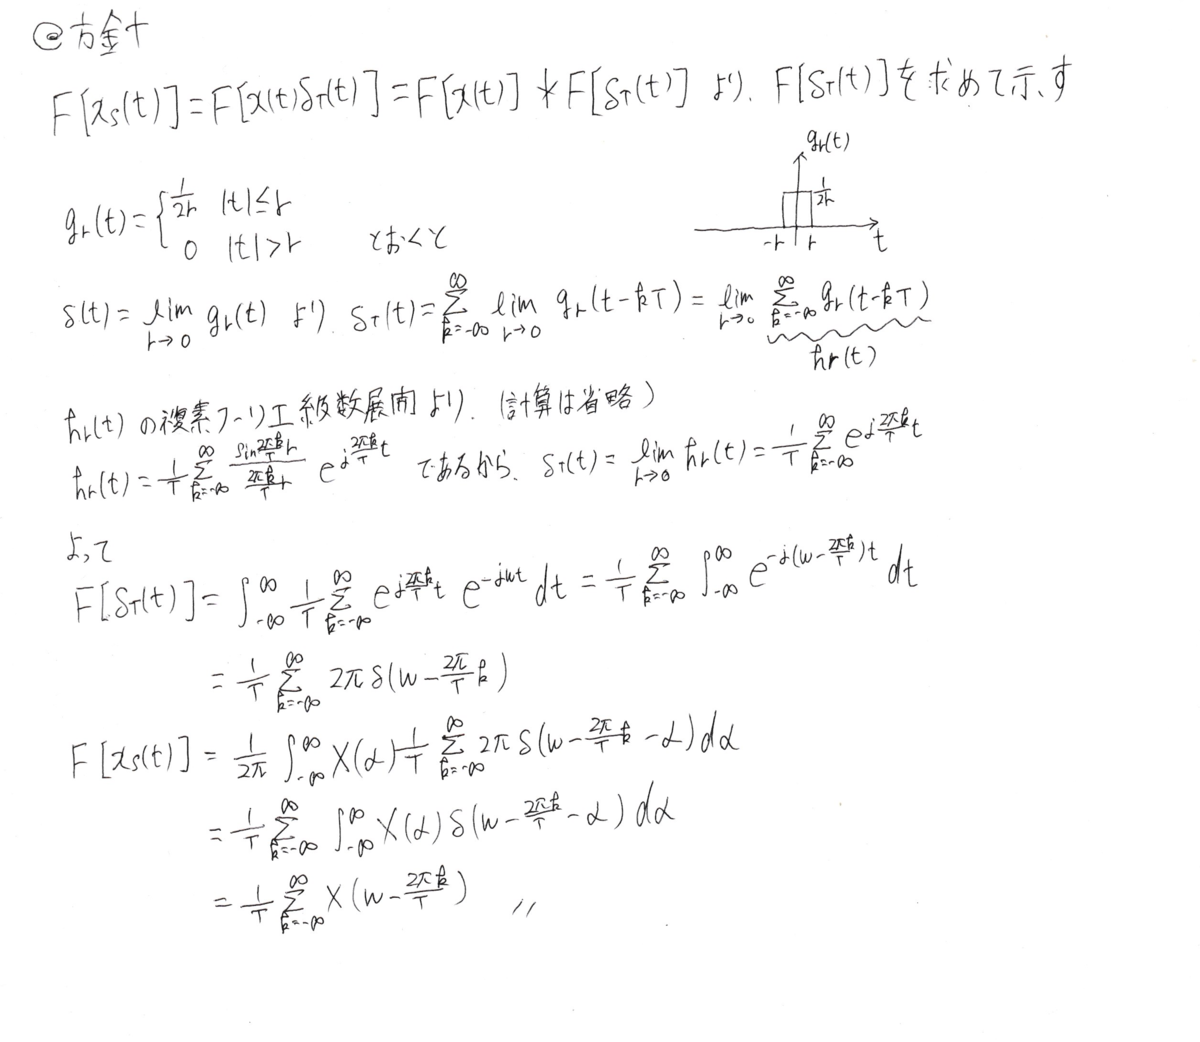 ◎方針
F[xs(t)]=F[x(t)δT(t)]=F[x(t)]*F[δT(t)] より、F[δT(t)]を求めて示す
gr(t)
1/2r
-r r t
gr(t)={1/2r |t|≤r
0 |t|>r とおくと
δ(t)=lim r→0 gr(t) より δT(t)=∑k=-∞^∞ lim r→0 gr(t-kT)=lim r→0 ∑k=-∞^∞ gr(t-kT)
hr(t)
hr(t)の複素フーリエ級数展開より、(計算は省略)
hr(t)=1/T ∑k=-∞^∞ (sin 2πk/T r)/(2πk/T r) e^{j2πk/T t} であるから、δT(t)=lim r→0 hr(t)=1/T ∑k=-∞^∞ e^{j2πk/T t}
よって
F[δT(t)]=∫-∞^∞ 1/T ∑k=-∞^∞ e^{j2πk/T t} e^{-jωt} dt=1/T ∑k=-∞^∞ ∫-∞^∞ e^{-j(ω-2πk/T)t} dt
=1/T ∑k=-∞^∞ 2πδ(ω-2π/T k)
F[xs(t)]=1/2π ∫-∞^∞ X(α) 1/T ∑k=-∞^∞ 2πδ(ω-2π/T k-α)dα
=1/T ∑k=-∞^∞ ∫-∞^∞ X(α)δ(ω-2πk/T-α)dα
=1/T ∑k=-∞^∞ X(ω-2πk/T) //